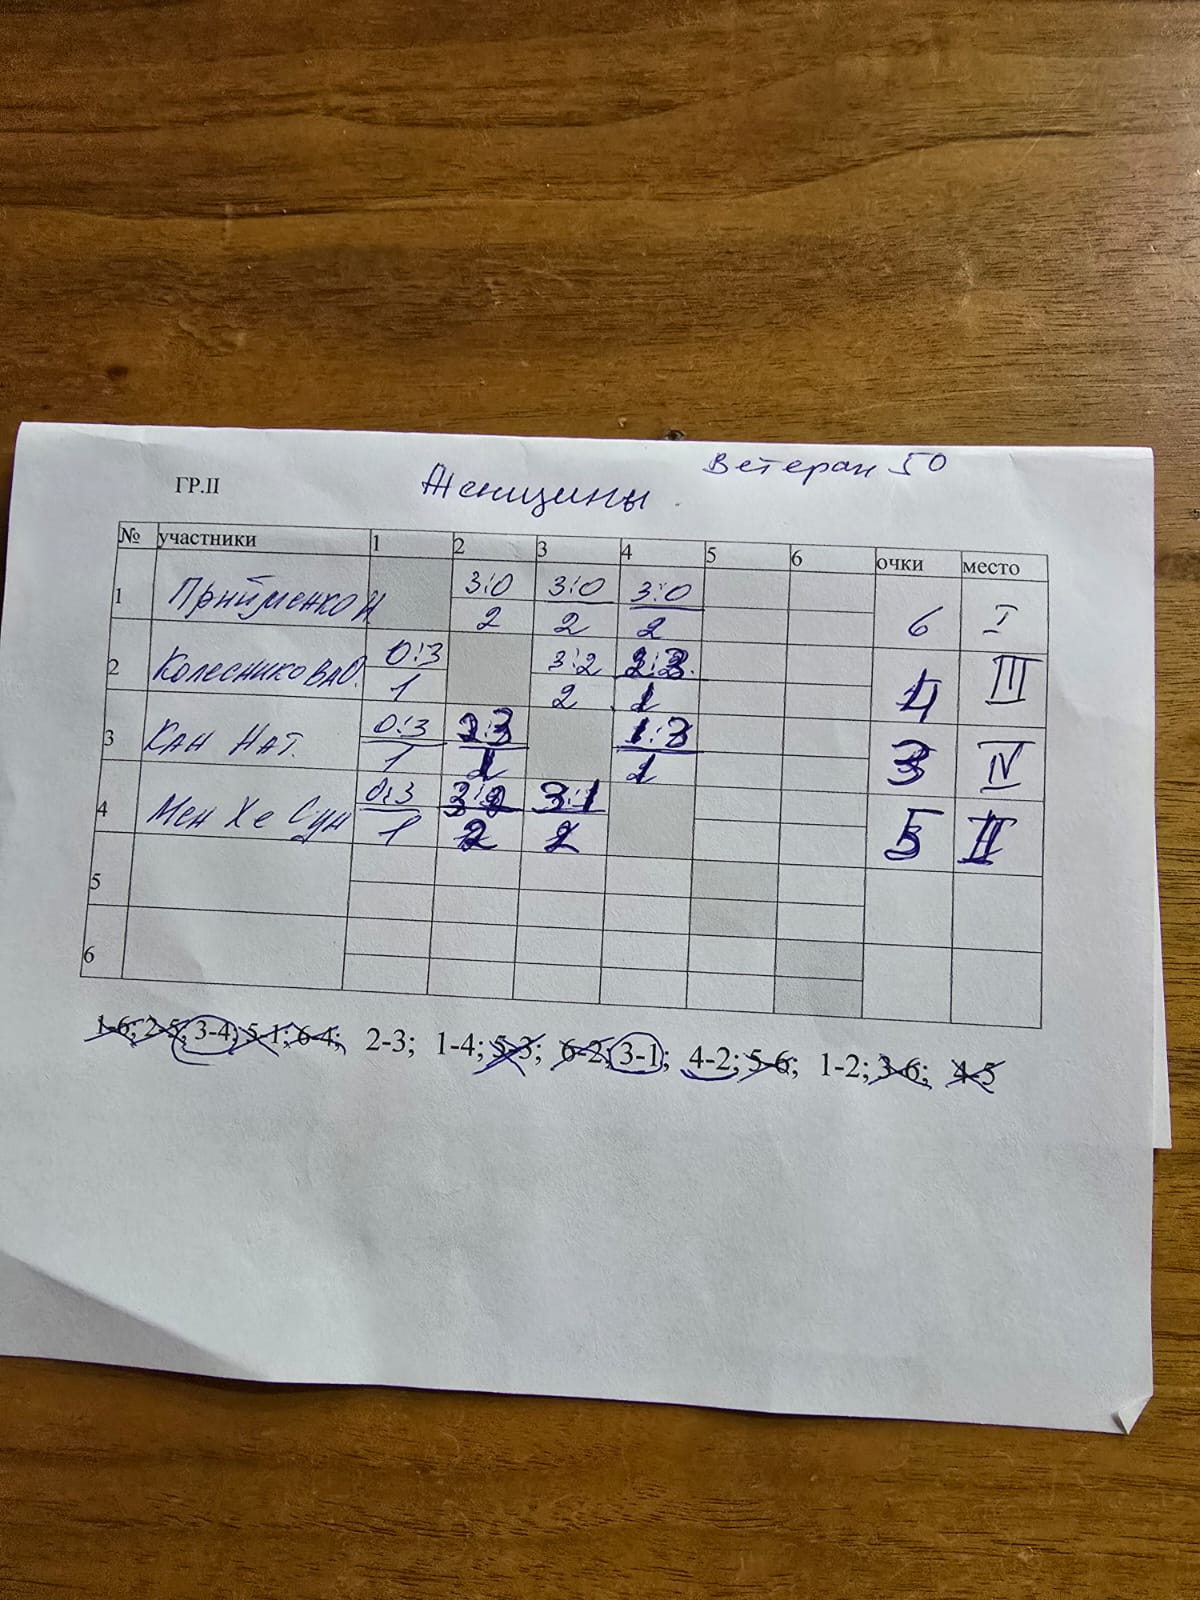 Ветеран 50
ГР.II Женщины
№ участники 1 2 3 4 5 6 очки место
1 Прийменко Н 3:0 3:0 3:0 6 I
2 2 2
2 Колесникова О. 0:3 3:2 2:3 4 III
1 2 1
3 Кан Нат. 0:3 2:3 1:3 3 IV
1 1 1
4 Мен Хе Сун 0:3 3:2 3:1 5 II
1 2 2
5
6
1-6; 2-5; 3-4; 5-1; 6-4; 2-3; 1-4; 5-3; 6-2; 3-1; 4-2; 5-6; 1-2; 3-6; 4-5